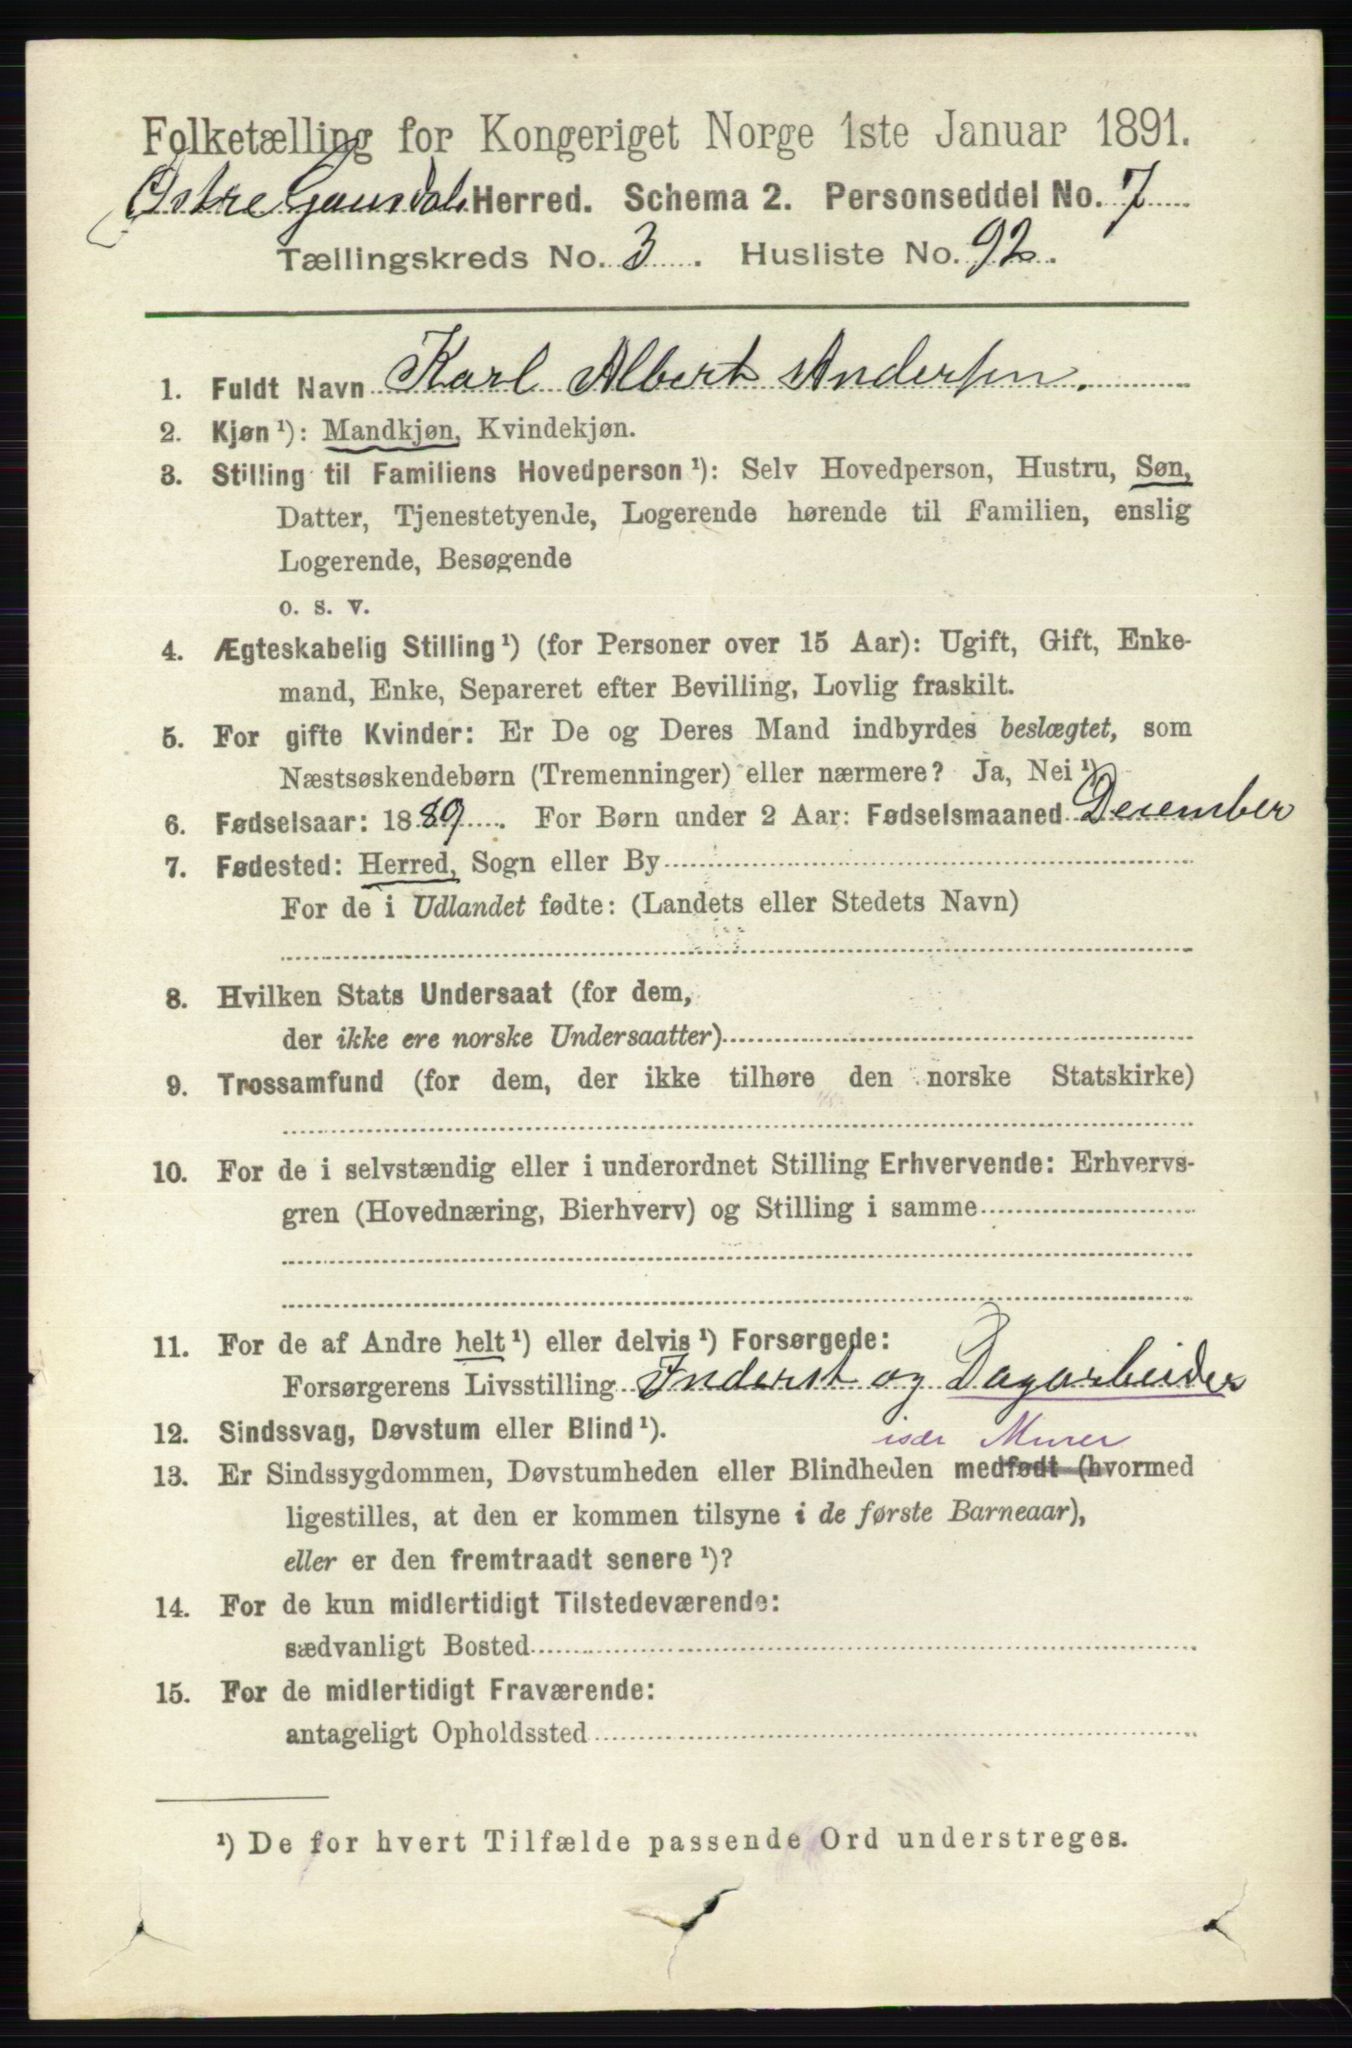 Folketælling for Kongeriget Norge 1ste Januar 1891.
Østre Gausdal Herred. Schema 2. Personseddel No. 7
Tællingskreds No. 3. Husliste No. 92.
1. Fuldt Navn Karl Albert Andersen.
2. Kjøn ¹): Mandkjøn, Kvindekjøn.
3. Stilling til Familiens Hovedperson ¹): Selv Hovedperson, Hustru, Søn,
Datter, Tjenestetyende, Logerende hørende til Familien, enslig
Logerende, Besøgende
o. s. v.
4. Ægteskabelig Stilling ¹) (for Personer over 15 Aar): Ugift, Gift, Enke-
mand, Enke, Separeret efter Bevilling, Lovlig fraskilt.
5. For gifte Kvinder: Er De og Deres Mand indbyrdes beslægtet, som
Næstsøskendebørn (Tremenninger) eller nærmere? Ja, Nei ¹)
6. Fødselsaar: 1889. For Børn under 2 Aar: Fødselsmaaned December
7. Fødested: Herred, Sogn eller By
For de i Udlandet fødte: (Landets eller Stedets Navn)
8. Hvilken Stats Undersaat (for dem,
der ikke ere norske Undersaatter)
9. Trossamfund (for dem, der ikke tilhøre den norske Statskirke)
10. For de i selvstændig eller i underordnet Stilling Erhvervende: Erhvervs-
gren (Hovednæring, Bierhverv) og Stilling i samme
11. For de af Andre helt ¹) eller delvis ¹) Forsørgede:
Forsørgerens Livsstilling Inderst og Dagarbeider
12. Sindssvag, Døvstum eller Blind ¹). især Murer
13. Er Sindssygdommen, Døvstumheden eller Blindheden medfødt (hvormed
ligestilles, at den er kommen tilsyne i de første Barneaar),
eller er den fremtraadt senere ¹)?
14. For de kun midlertidigt Tilstedeværende:
sædvanligt Bosted
15. For de midlertidigt Fraværende:
antageligt Opholdssted
¹) De for hvert Tilfælde passende Ord understreges.